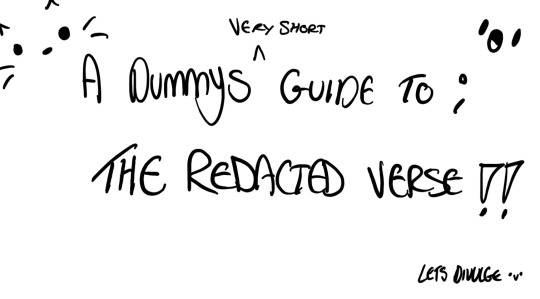 VERY SHORT
A DUMMYS ^ GUIDE TO ;
THE REDACTED VERSE !!
LETS DIVULGE ·v·